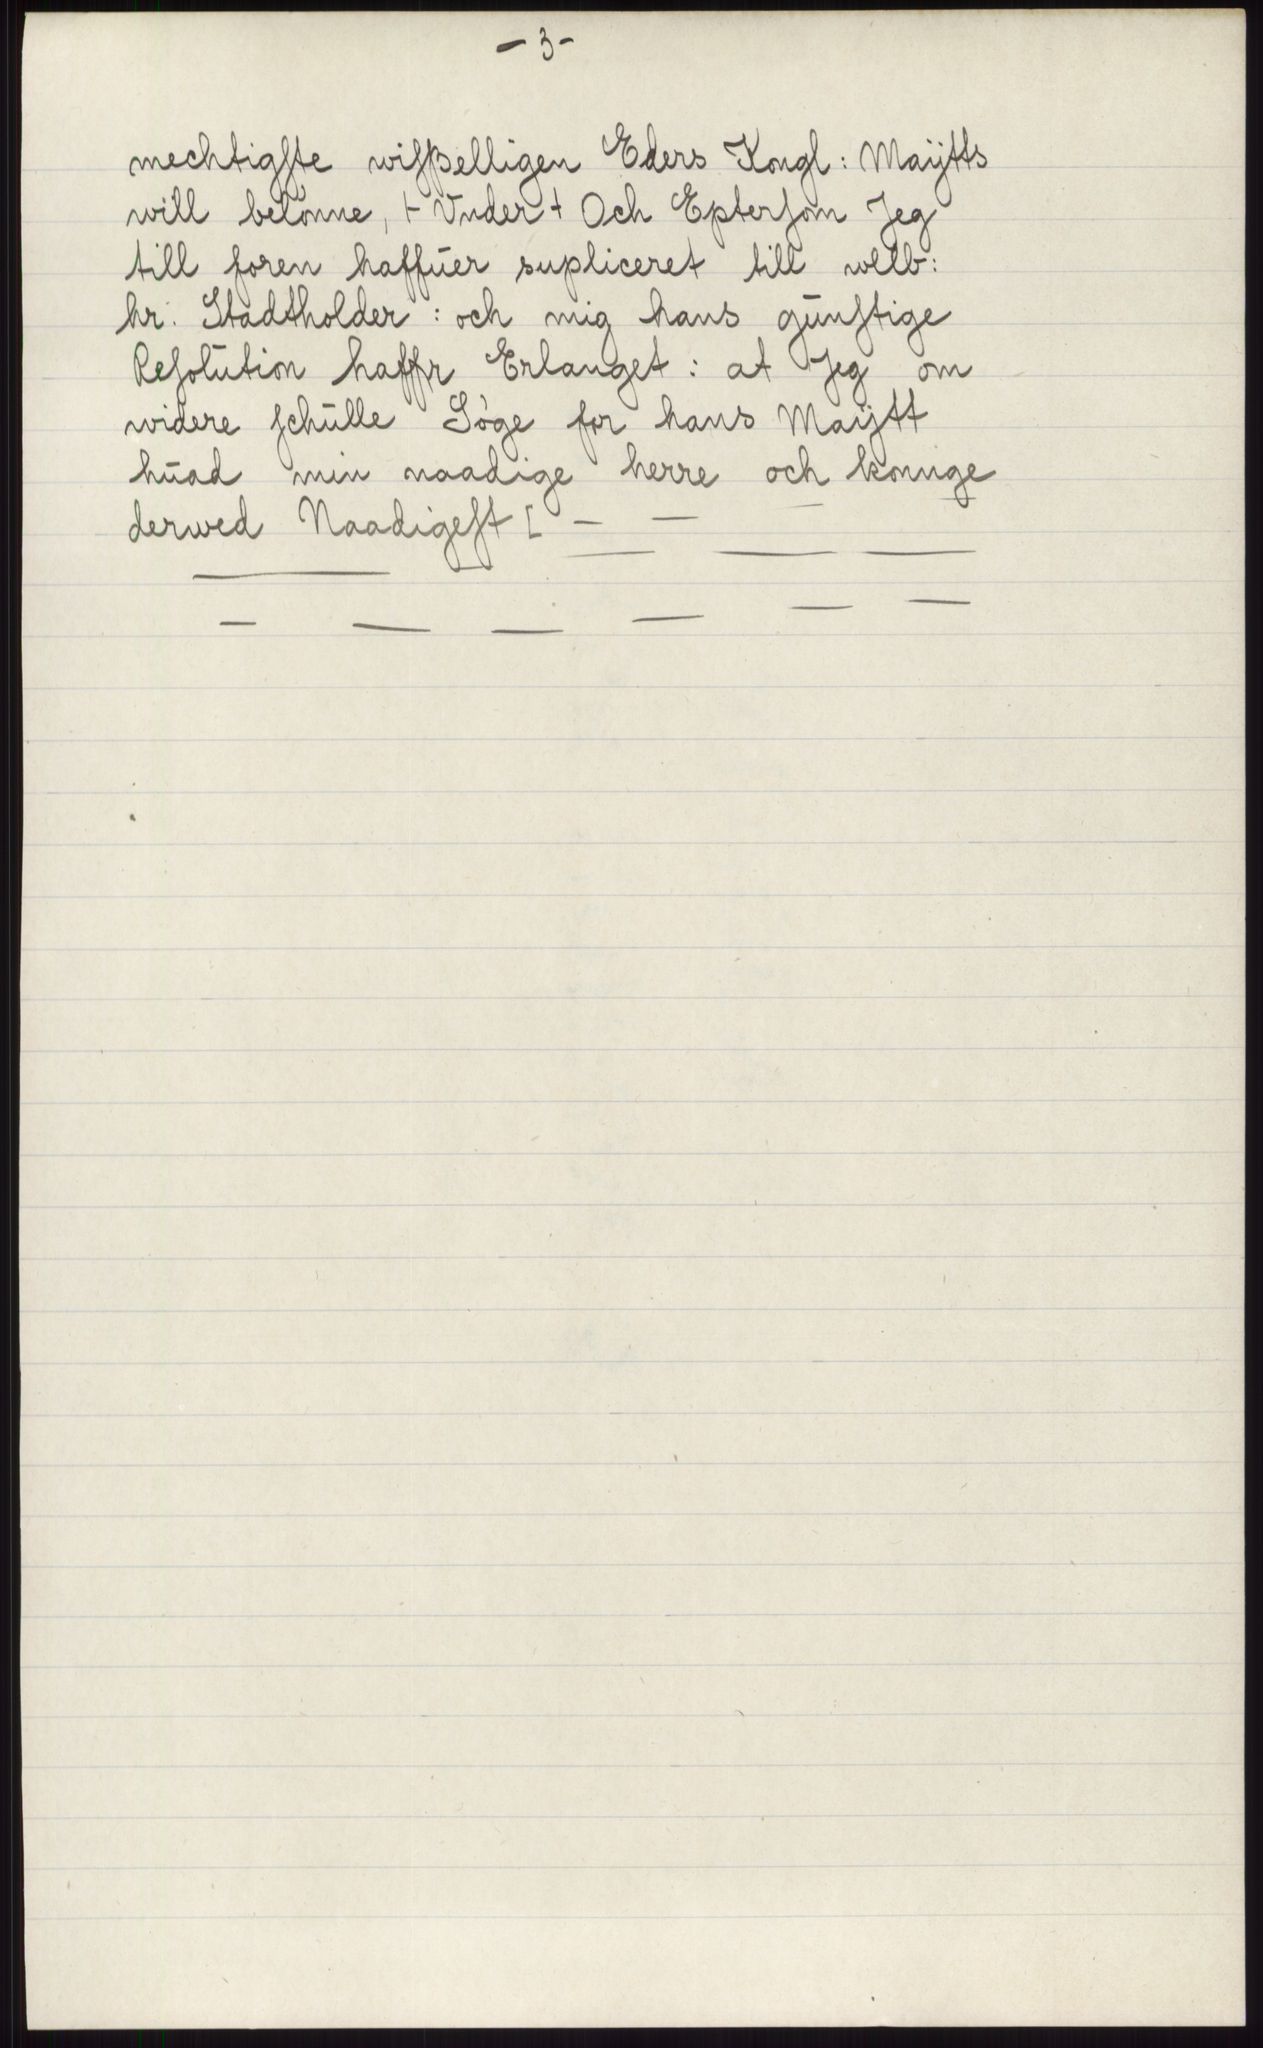 - 3 -
mechtigſte wiſßelligen Eders Kongl: Maÿtts
will belönne, ⊢ Vnder + Och Epterſom Jeg
till foren haffūer supliceret till welb:
hr. Stadtholder: och mig hans gūnſtige
Reſolūtion haffr Erlanget: at Jeg om
widere ſchūlle Söge for hans Maÿtt
hūad min naadige herre och konnge
derwed Naadigeſt [ — — — —